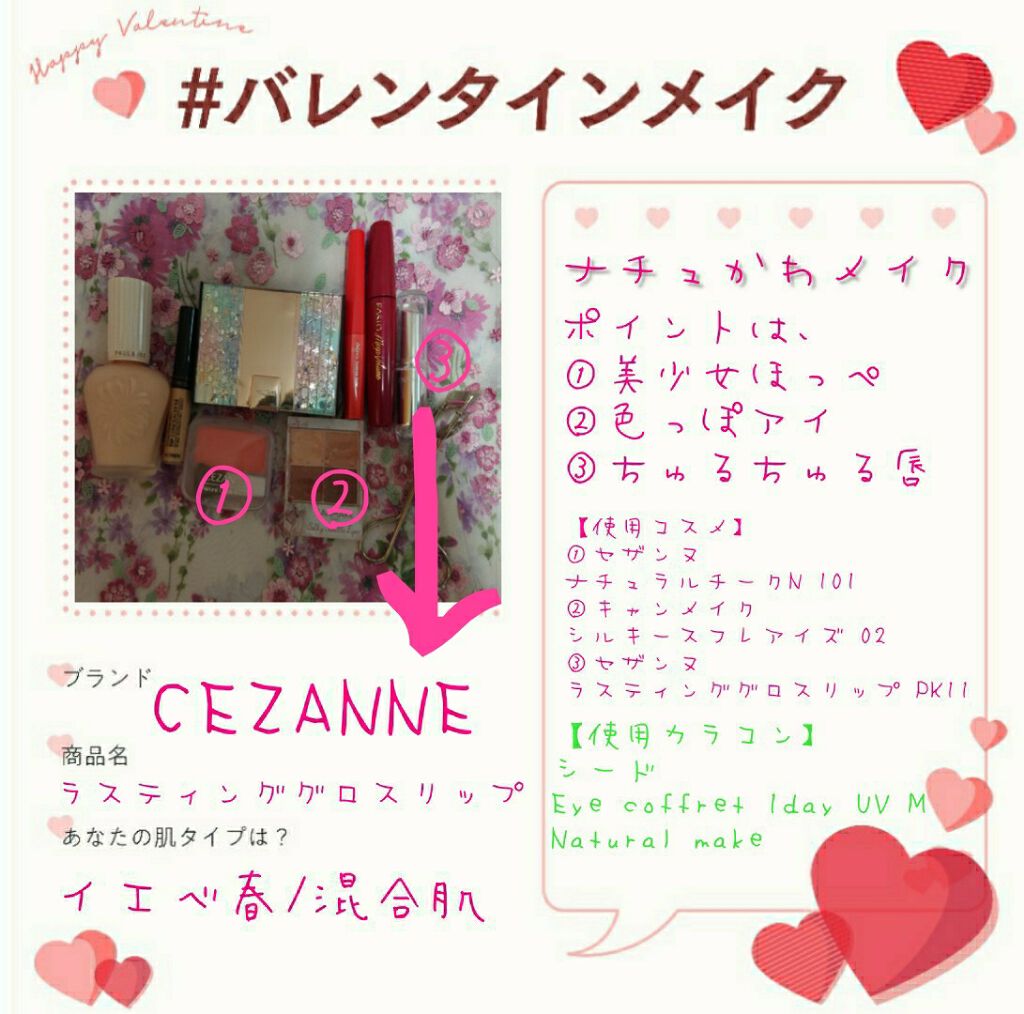 Happy Valentine
#バレンタインメイク
PAUL & JOE
①
②
③
ブランド
CEZANNE
商品名
ラスティンググロスリップ
あなたの肌タイプは？
イエベ春/混合肌
ナチュかわメイク
ポイントは、
①美少女ほっぺ
②色っぽアイ
③ちゅるちゅる唇
【使用コスメ】
①セザンヌ
ナチュラルチークN 101
②キャンメイク
シルキースフレアイズ 02
③セザンヌ
ラスティンググロスリップ PK11
【使用カラコン】
シード
Eye coffret 1day UV M
Natural make